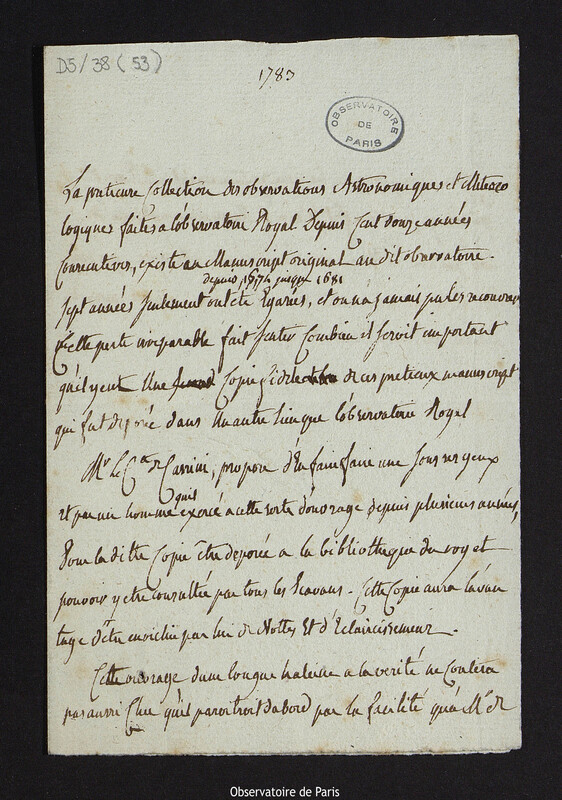 D5/38 (53)
1783
OBSERVATOIRE
DE
PARIS
La pretieuse Collection des observations Astronomiques et Meteoro
logiques faites a l'observatoire Royal Depuis Cent douze années
Consecutives, existe en Manuscript original au dit observatoire.
depuis 1674 jusqu'a 1681
Sept années seulement ont été Egarées, et on n'a jamais pu les recouvrer
Cette perte irreparable fait sentir Combien il seroit important
qu'il y eut Une Copie fidele de ces pretieux manuscript
qui fut deposée dans un autre lieu que l'observatoire Royal
Mr. Le Cte. de Cassini, propose d'En faire faire une sous ses yeux
et par un homme exercé a cette sorte d'ouvrage depuis plusieurs années,
Pour la ditte Copie être deposée a la bibliotheque du roy et
pouvoir y etre consultée par tous les sçavans. Cette Copie aura l'avan
tage d'être enrichie par lui de Nottes Et d'Eclaircissemens.
Cette ouvrage d'une longue haleine a la verité ne coutera
pas aussi Cher qu'il paroitroit d'abord par la facilité qu'a Mr. de
Observatoire de Paris